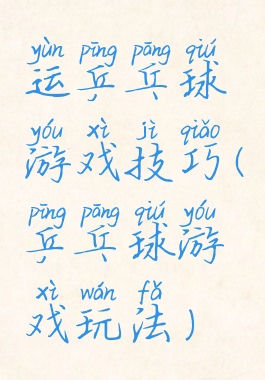 yùn pīng pāng qiú
运乒乓球
yóu xì jì qiǎo
游戏技巧(
pīng pāng qiú yóu
乒乓球游
xì wán fǎ
戏玩法)